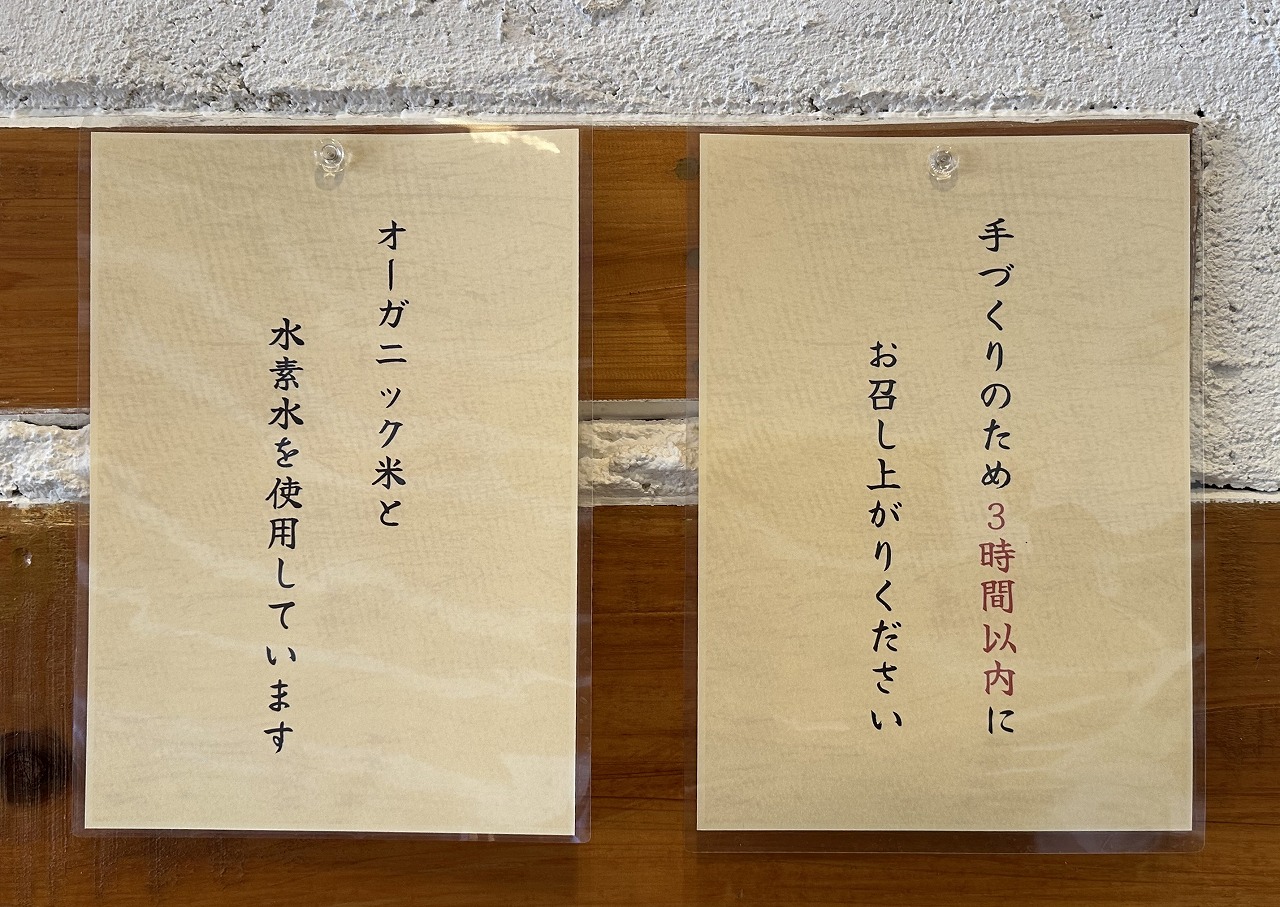 手づくりのため3時間以内に
お召し上がりください
オーガニック米と
水素水を使用しています